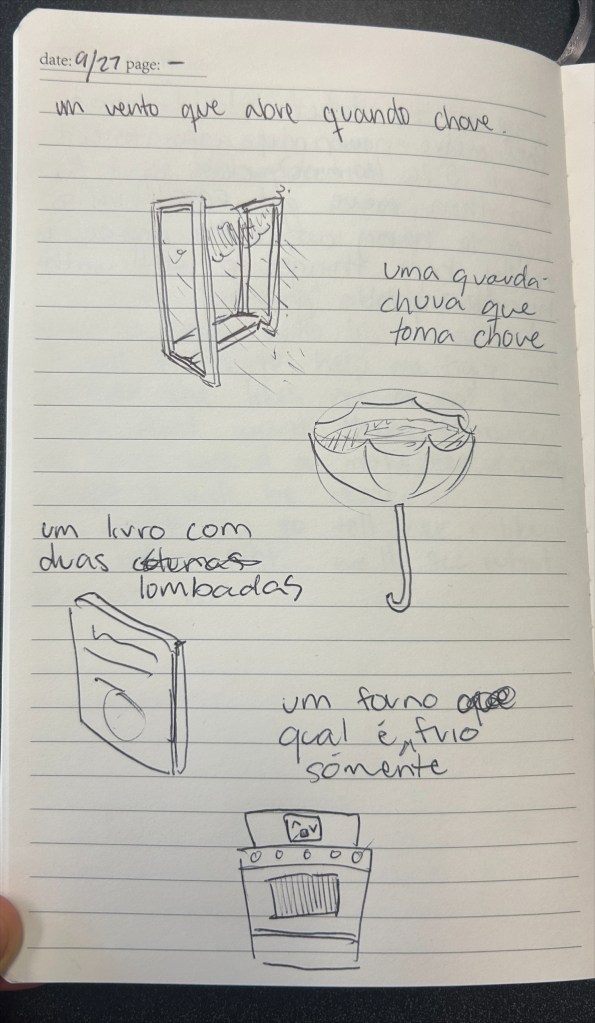 date: 9/27 page: –
um vento que abre quando chove.
uma guarda-
chuva que
toma chove
um livro com
duas colunas
lombadas
um forno que
qual é frio
sómente